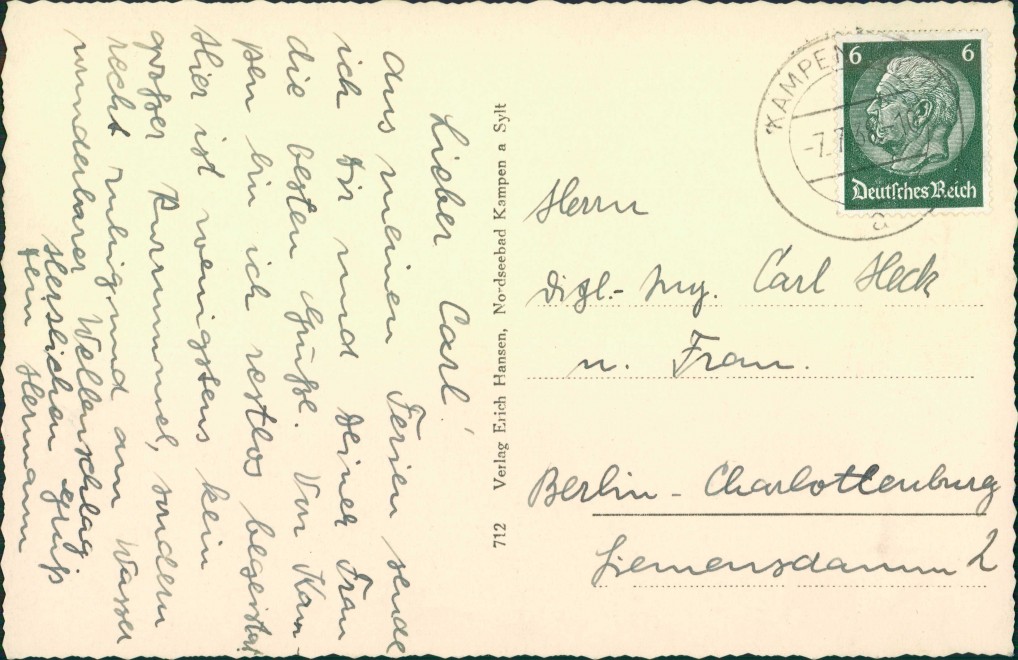 Lieber Carl!
Aus meinen Ferien sende
ich Dir und Deiner Frau
die besten Grüße. Von Kam-
pen bin ich restlos begeistert
Hier ist wenigstens kein
großer Rummel, sondern
recht ruhig und am Wasser
wunderbarer Wellenschlag
Herzlichen Gruß
Dein Hermann
712 Verlag Erich Hansen, Nordseebad Kampen a Sylt
KAMPEN
-7.7.
a
6 6
Deutsches Reich
Herrn
Dipl.-Ing. Carl Heck
u. Frau.
Berlin-Charlottenburg
Siemensdamm 2